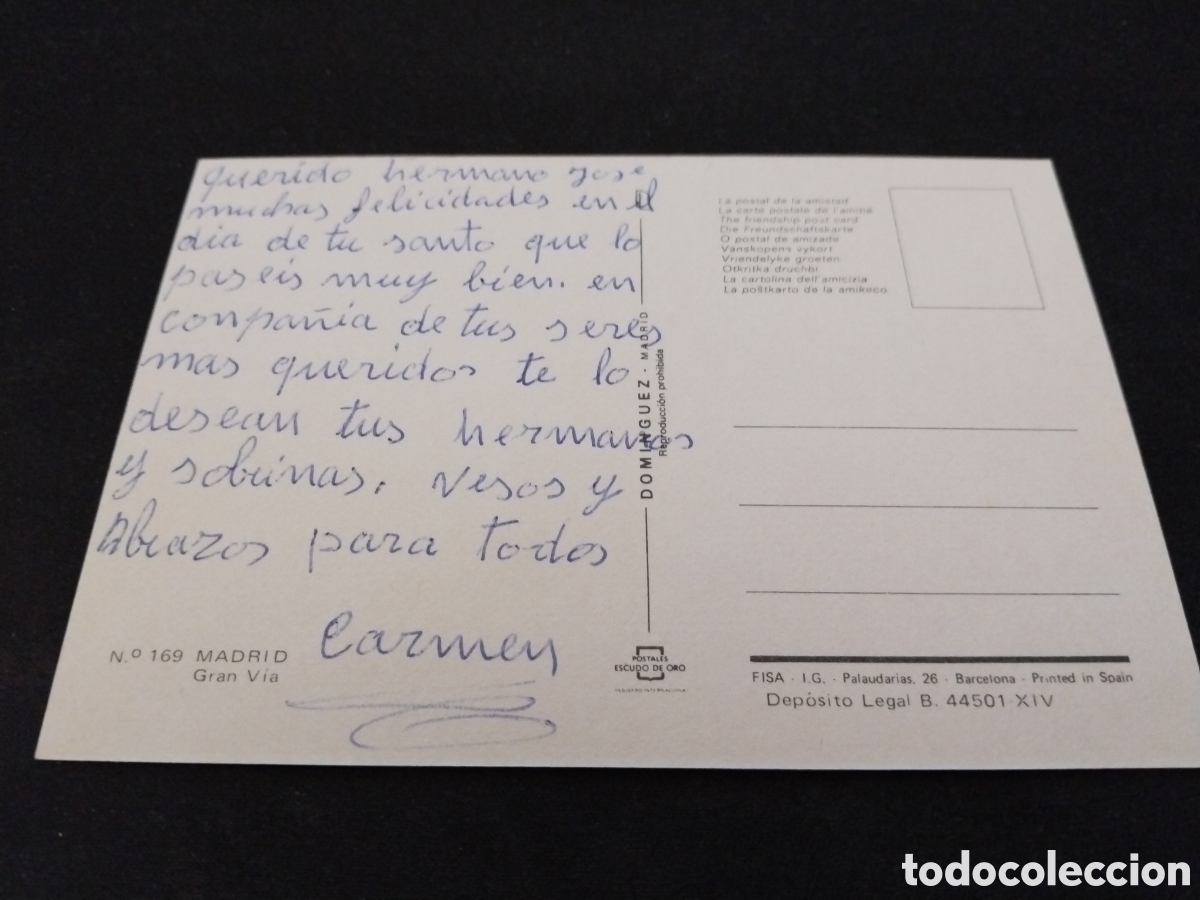 querido hermano Jose
muchas felicidades en el
dia de tu santo que lo
paseis muy bien. en
conpañia de tus seres
mas queridos te lo
desean tus hermanos
y sobrinas. vesos y
Abrazos para todos
Carmen
N.º 169 MADRID
Gran Vía
DOMINGUEZ · MADRID
Reproducción prohibida
POSTALES
ESCUDO DE ORO
La postal de la amistad
La carte postale de l'amitié
The friendship post card
Die Freundschaftskarte
O postal de amizade
Vanskopens vykort
Vriendelyke groeten
Otkritka druchbi
La cartolina dell'amicizia
La poŝtkarto de la amikeco
FISA · I.G. · Palaudarias, 26 · Barcelona · Printed in Spain
Depósito Legal B. 44501-XIV
todocoleccion